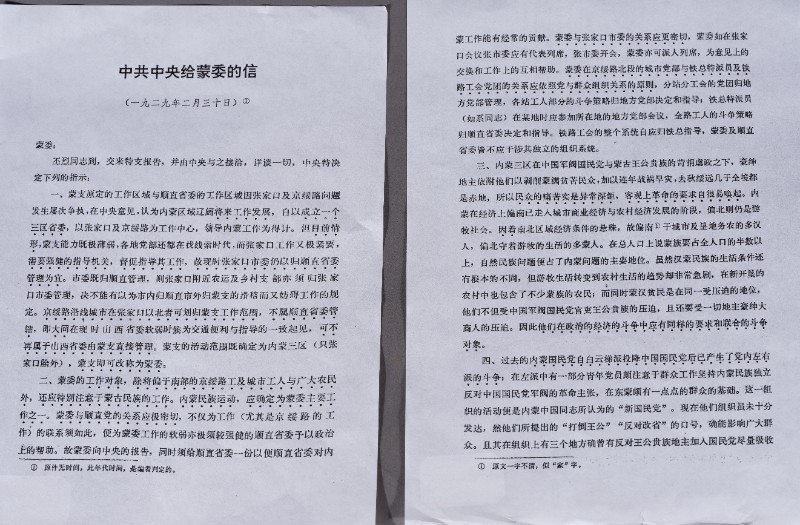 中共中央给蒙委的信
（一九二九年二月三十日）①
蒙委：
丕烈同志到，交来特支报告，并由中央与之接洽，详谈一切，中央特决
定下列的指示：
一、蒙支原定的工作区域与顺直省委的工作区域因张家口及京绥路问题
发生屡次争执，在中央意见，认为内蒙区域辽阔将来工作发展，自以成立一个
三区省委，以张家口及京绥路为工作中心，领导内蒙工作为得计。但目前情
形，蒙支能力既极薄弱，各地党部还都在找线索时代，而张家口工作又极紧要，
需要强健的指导机关，督促指导其工作，故现时张家口市委仍以归顺直省委
管理为宜。市委既归顺直管理，则张家口附近农运及乡村支部亦须归张家
口市委管理，决不能有以为市内归顺直市外归蒙支的滑稽而又妨碍工作的规
定。京绥路沿线城市在张家口以北者可划归蒙支工作范围，不属顺直省委管
辖，即大同在现时山西省委软弱时候为交通便利与指导的一致起见，可不
再属于山西省委由蒙支直接管理。蒙支的活动范围既确定为内蒙三区（只张
家口除外），蒙支即可改称为蒙委。
二、蒙委的工作对象，除将偏于南部的京绥路工及城市工人与广大农民
外，还应特别注意于蒙古民族的工作。内蒙民族运动，应确定为蒙委主要工
作之一。蒙委与顺直党的关系应极密切，不仅为工作（尤其是京绥路的工
作）的联系须如此，便为蒙委工作的软弱亦极须较强健的顺直省委予以政治
上的帮助。故蒙委向中央的报告，同时须给顺直省委一份以便顺直省委对内
① 原件无时间，此年代时间，是编者判定的。
蒙工作能有经常的贡献。蒙委与张家口市委的关系应更密切，蒙委如在张家
口会议张市委应有代表列席，张市委开会，蒙委亦可派人列席，为意见上的
交换和工作上的互相帮助。蒙委在京绥路北段的城市党部与铁总特派员及铁
路工会党团的关系应依照党与群众组织关系的原则，分站分工会的党团归地
方党部管理，各站工人部分的斗争策略归地方党部决定和指导；铁总特派员
（如系同志）在某地时应参加所在地的地方党部会议，全路工人的斗争策略
归顺直省委决定和指导。铁路工会的整个系统自应归铁总指导，蒙委及顺直
省委皆不应干涉其独立的组织系统。
三、内蒙三区在中国军阀国民党与蒙古王公贵族的苛捐虐政之下，豪绅
地主依附他们以剥削蒙满贫苦民众，加以连年战祸旱灾，去秋绥远几于全境都
是赤地，所以民众的痛苦实是异常深钜，客观上革命的要求自很易唤起。内
蒙在经济上偏南已走入城市商业经济与农村经济发展的阶段，偏北则仍是游
牧社会。因着南北区域经济条件的悬殊，故偏南于城市及垦地务农的多汉
人，偏北守着游牧的生活的多蒙人。在总人口上说蒙族要占全人口的半数以
上，自然民族问题便占了内蒙问题的主要地位。虽然汉蒙民族的生活条件还
有根本的不同，但游牧生活转变到农村生活的趋势却非常急剧，在新开垦的
农村中也包含了不少蒙族的农民；而同时蒙汉贫民是在同一受压迫的地位，
他们不但受中国军阀国民党官吏王公贵族的压迫，且还要受一切地主豪绅大
商人的压迫。因此他们在政治的经济的斗争中应有同样的要求和联合的斗争
对象。
四、过去的内蒙国民党自白云梯派投降中国国民党后已产生了党内左右
派的斗争；在左派中有一部分青年党员颇注意于群众工作坚持内蒙民族独立
反对中国国民党军阀的革命主张，在东蒙颇有一点点的群众的基础。这一组
织的活动便是内蒙中国同志所认为的“新国民党”。现在他们组织虽未十分
发达，然他们所提出的“打倒王公”“反对改省”的口号，确能影响广大群
众。且其在组织上有三个地方确曾有反对王公贵族地主加入国民党尽量吸收
① 原文一字不清，似“家”字。